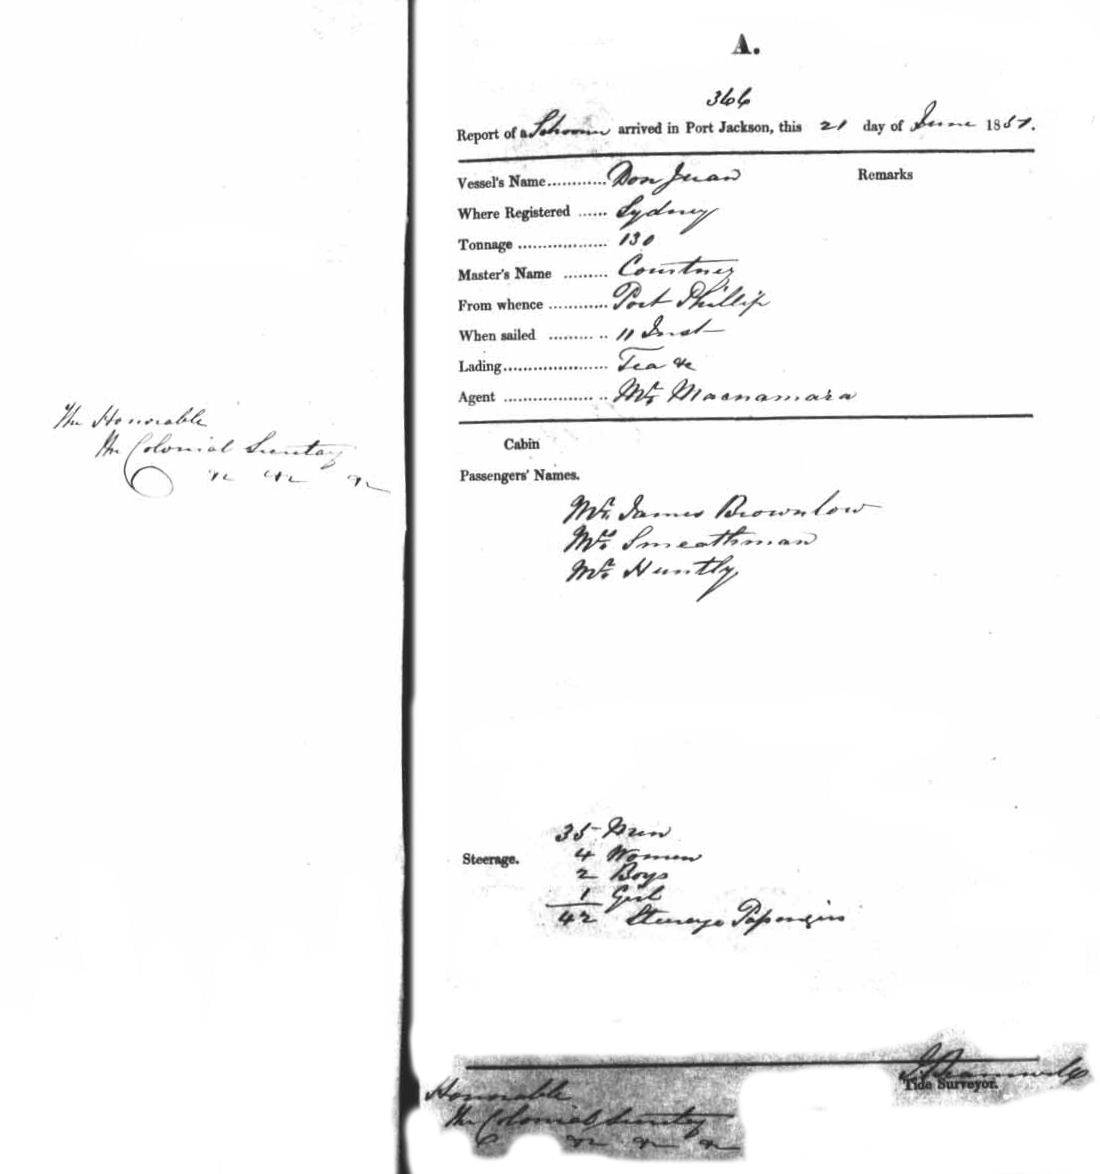 The Honorable
The Colonial Secretary
&c &c &c
A.
366
Report of a Schooner arrived in Port Jackson, this 21 day of June 1851.
Vessel's Name............ Don Juan Remarks
Where Registered ...... Sydney
Tonnage .................. 130
Master's Name ......... Courtney
From whence ............ Port Phillip
When sailed ......... .. 11 Inst
Lading..................... Tea &c
Agent .................. .. Mr. Macnamara
Cabin
Passengers' Names.
Mr. James Brownlow
Mrs. Smeathman
Mr. Huntly
35 Men
Steerage. 4 Women
2 Boys
1 Girl
42 Steerage Passengers
Tide Surveyor.
Honorable
The Colonial Secretary
&c &c &c